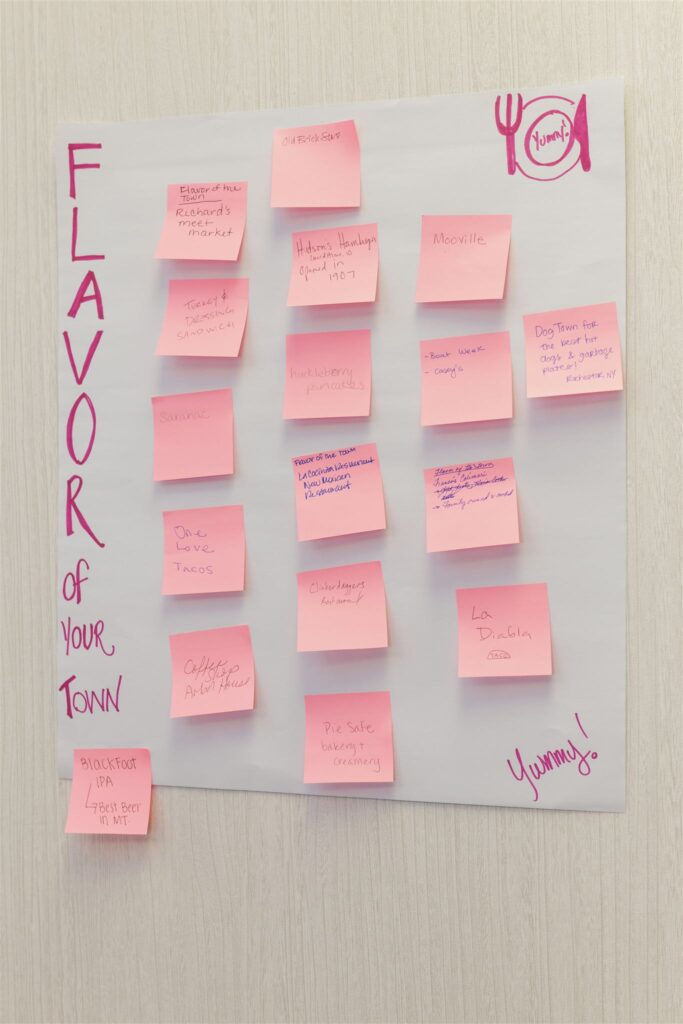 FLAVOR
OF
YOUR
TOWN
Yummy!
Old Brick Store
Flavor of the
Town
Richard's
meet
market
Hudson's Hamburger
opened in
1907
Mooville
Turkey &
Dressing
Sandwich
huckleberry
pancakes
- Boat Week
- Casey's
Dog Town for
the best hot
dogs & garbage
plates!
Rochester NY
Saranac
Flavor of the Town
La Cocinita Restaurant
New Mexican
Restaurant
Family owned &
One
Love
Tacos
Clinkerdaggers
Restaurant
La
Diabla
TACO
Coffee
Shop
Pie Safe
bakery +
creamery
Blackfoot
IPA
Best Beer
in MT.
Yummy!